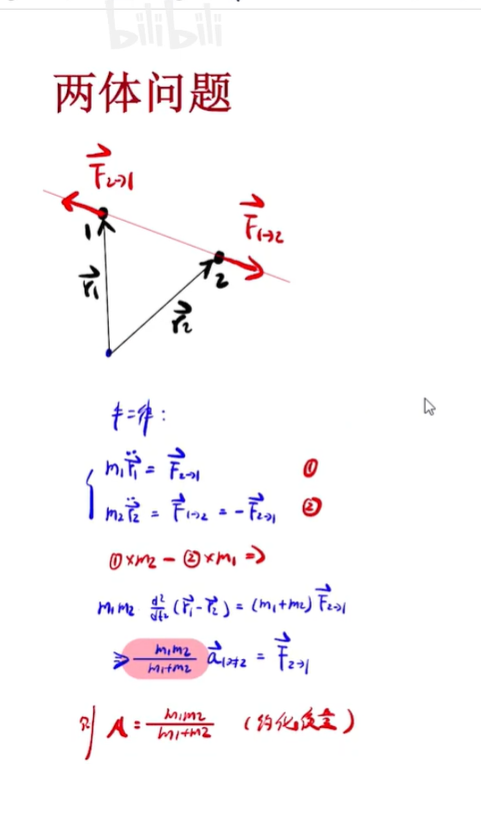 bilibili
两体问题
F⃗₂→₁
F⃗₁→₂
1
2
r⃗₁
r⃗₂
牛二律:
m₁r̈⃗₁ = F⃗₂→₁ ①
m₂r̈⃗₂ = F⃗₁→₂ = -F⃗₂→₁ ②
①×m₂ - ②×m₁ =>
m₁m₂ d²/dt² (r⃗₁-r⃗₂) = (m₁+m₂) F⃗₂→₁
=> m₁m₂/(m₁+m₂) a⃗₁→₂ = F⃗₂→₁
则 μ = m₁m₂/(m₁+m₂) (约化质量)